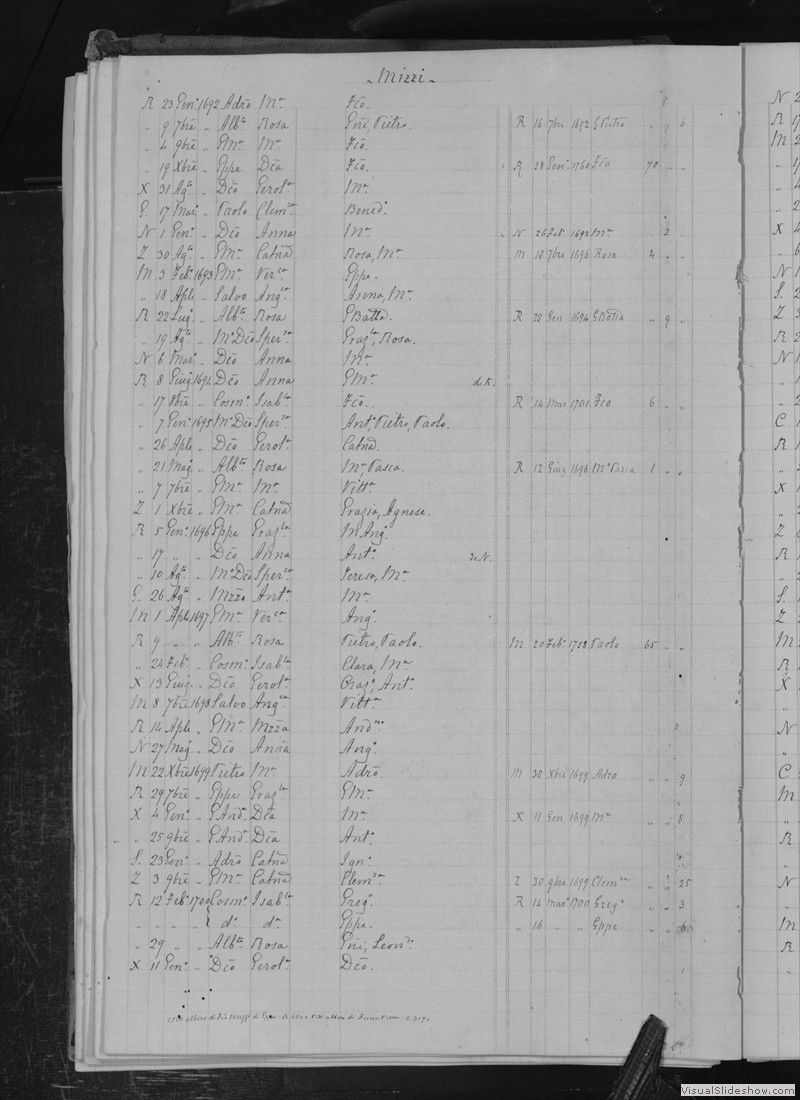 Mizzi
R 23 Gen.º 1692 Adrō Mª Fcō.
„ 9 7bre „ Albtº Rosa Gñi, Pietro. R 16 7bre 1692 G Pietro „ „ 6
„ 4 9bre „ GMª Mª Fcō.
„ 19 Xbre „ Gppe Dca Fcō. R 28 Gen.º 1760 Fcō 70 „ „
X 31 Agtº „ Dcō Gerolª Mª
G. 17 Mar.º „ Paolo Clemzª Bened.º
N 1 Gen.º „ Dcō Anna Mª N 26 Feb.º 1692 Mª „ 2 „
Z 30 Agtº „ GMª Catnā Rosa, Mª M 18 7bre 1696 Rosa 4 „ „
M 3 Feb.º 1693 GMª Vercª Gppe.
„ 18 Aple „ Salvo Angcª Anna, Mª
R 22 Lug.º „ Albtº Rosa GBatta. R 28 Gen 1694 GBatta „ 9 „
„ 19 Agtº „ Mº Dcō Sperzª Grazlª, Rosa.
N 6 Mar.º „ Dcō Anna Mª
R 8 Giug 1694 Dcō Anna GMª de R.
„ 17 8bre „ Cosmº Isablª Fcō. R 14 Mar 1701 Fco 6 „ „
„ 7 Gen.º 1695 Mº Dcō Sperzª Antº, Pietro, Paolo.
„ 26 Aple „ Dcō Gerolª Catnā.
„ 21 Mag.º „ Albtº Rosa Mª, Pasca. R 12 Giug 1696 Mª Pasca 1 „ „
„ 7 7bre „ GMª Mª Vittª
Z 1 Xbre „ GMª Catnā Grazia, Agnese.
R 5 Gen.º 1696 Gppe Grazlª M Ang.º
„ 17 „ „ Dcō Anna Ant.º de N.
„ 10 Agtº „ Mº Dcō Sperzª Teresa, Mª
G. 26 Agtº „ Mzza Antª Mª
M 1 Aple 1697 GMª Vercª Ang.º
R 9 „ „ Albtº Rosa Pietro, Paolo. M 20 Feb.º 1758 Paolo 65 „ „
„ 24 Feb.º „ Cosmº Isablª Clara, Mª
X 13 Giug. „ Dcō Gerolª Oraz.º, Ant.º
M 8 7bre 1698 Salvo Angcª Vittª
R 14 Aple „ GMª Mzza And.
N 27 Mag.º „ Dcō Anna Ang.º
M 22 Xbre 1699 Pietro Mª Adrō. M 30 Xbre 1699 Adro „ „ 9
R 29 7bre „ Gppe Grazlª GMª
X 4 Gen.º „ GAnd.º Dca Mª X 11 Gen 1699 Mª „ „ 8
„ 25 9bre „ GAnd.º Dca Ant.º
S. 23 Gen.º „ Adrō Catnā Ign.º
Z 3 9bre „ GMª Catnā Clemzª Z 30 9bre 1699 Clemzª „ „ 25
R 12 Feb.º 1700 Cosmº Isablª Greg.º R 14 Marº 1700 Gregº „ „ 3
„ „ „ „ dº dª Gppe. „ 16 „ „ Gppe „ „ 6
„ 29 „ „ Albtº Rosa Gñi, Leond.º
X 11 Gen.º „ Dcō Gerolª Dcō.
VisualSlideshow.com